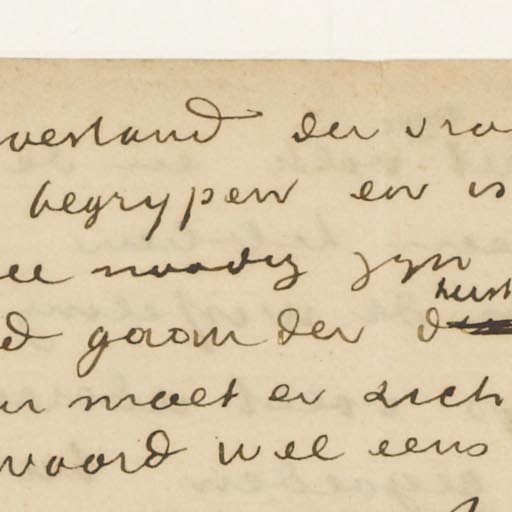 verstand der vra
begrypen en is
ee noodig zyn
d gaan der d
herst
ur moet er zich
woord wel eens